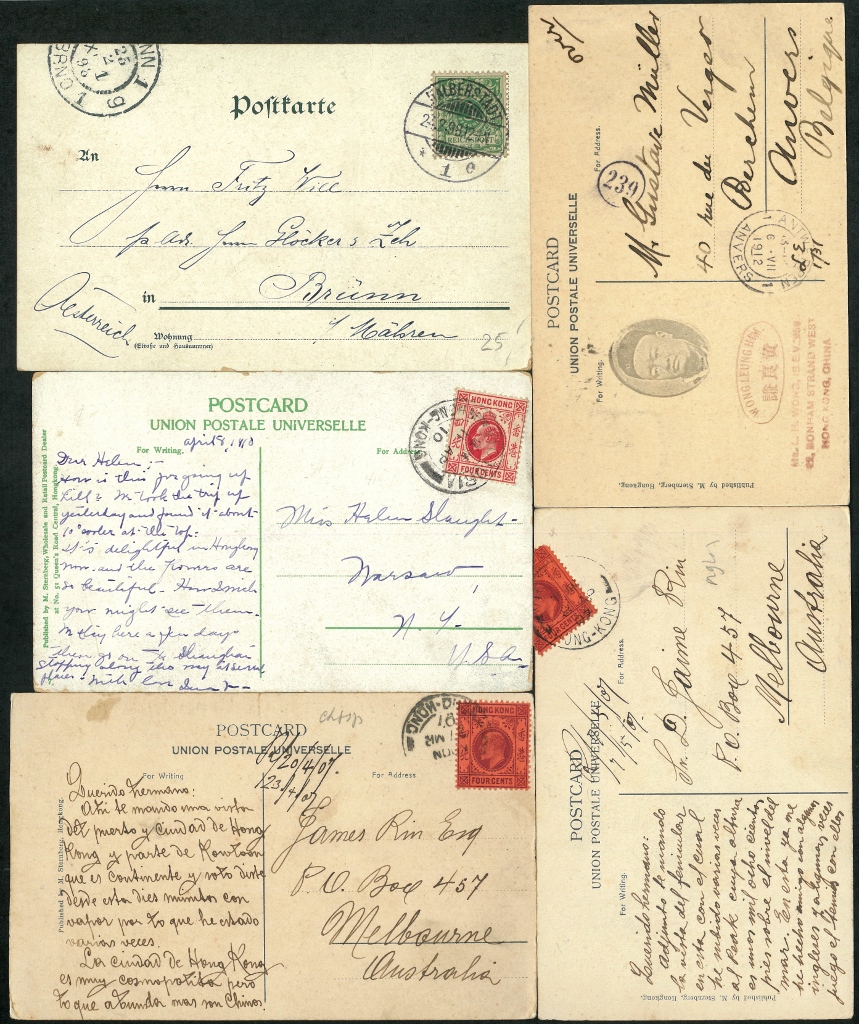 BRÜNN 1
BRNO 1
25
2
98
Postkarte
HALBERSTADT
REICHSPOST
* 1 e
An
Herrn Fritz Will
p. Adr. Herrn Glöcker & Zeh
in Brünn
Oesterreich
i/ Mähren
Wohnung
(Straße und Hausnummer)
25
POSTCARD
UNION POSTALE UNIVERSELLE
For Writing.
For Address.
HONG KONG
FOUR CENTS
Published by M. Sternberg, Wholesale and Retail Postcard Dealer
at No. 51 Queen's Road Central, Hongkong.
April 8, 1910
Dear Helen:-
How is this for going up
hill? We took the trip up
yesterday and found it about
10° cooler at the top.
It's delightful in Hongkong
now and the flowers are
so beautiful. How I wish
you might see them.
We stay here a few days
then go on to Shanghai
stopping along the way at several
places. With love
Miss Helen Slaught-
Warsaw
N.Y.
U.S.A.
POSTCARD
UNION POSTALE UNIVERSELLE
For Writing
For Address
HONG KONG
FOUR CENTS
20/4/07.
23/4/07
Published by M. Sternberg, Hongkong.
Querido hermano:
Ahi te mando una vista
del puerto y ciudad de Hong
Kong y parte de Kowloon
que es continente y solo dista
desde esta dies minutos con
vapor por lo que he estado
varias veces.
La ciudad de Hong Kong
es muy cosmopolita pero
lo que abundan mas son Chinos.
James Rin Esq
P.O. Box 457
Melbourne
Australia
POSTCARD
UNION POSTALE UNIVERSELLE
For Writing.
For Address.
239
M. Gustave Müller
40 rue du Verger
Berchem
Anvers
Belgique
ANTWERPEN
6-VII
1912
ANVERS
WONG LEUNG HIM
MR. L. H. WONG,
BONHAM STRAND WEST
HONG KONG, CHINA
Published by M. Sternberg, Hongkong.
POSTCARD
UNION POSTALE UNIVERSELLE
For Writing.
For Address.
HONG-KONG
FOUR CENTS
17/5/07
Sr. D. Jaime Rin
P.O. Box 457
Melbourne
Australia
Querido hermano:
Adjunto te mando
la vista del funicular
en esta con el cual
he subido varias veces
al Peak cuya altura
es unos mil ocho cientos
pies sobre el nivel del
mar. En esta ya me
he hecho amigo con algunos
ingleses y algunas veces
juego el tennis con ellos
Published by M. Sternberg, Hongkong.